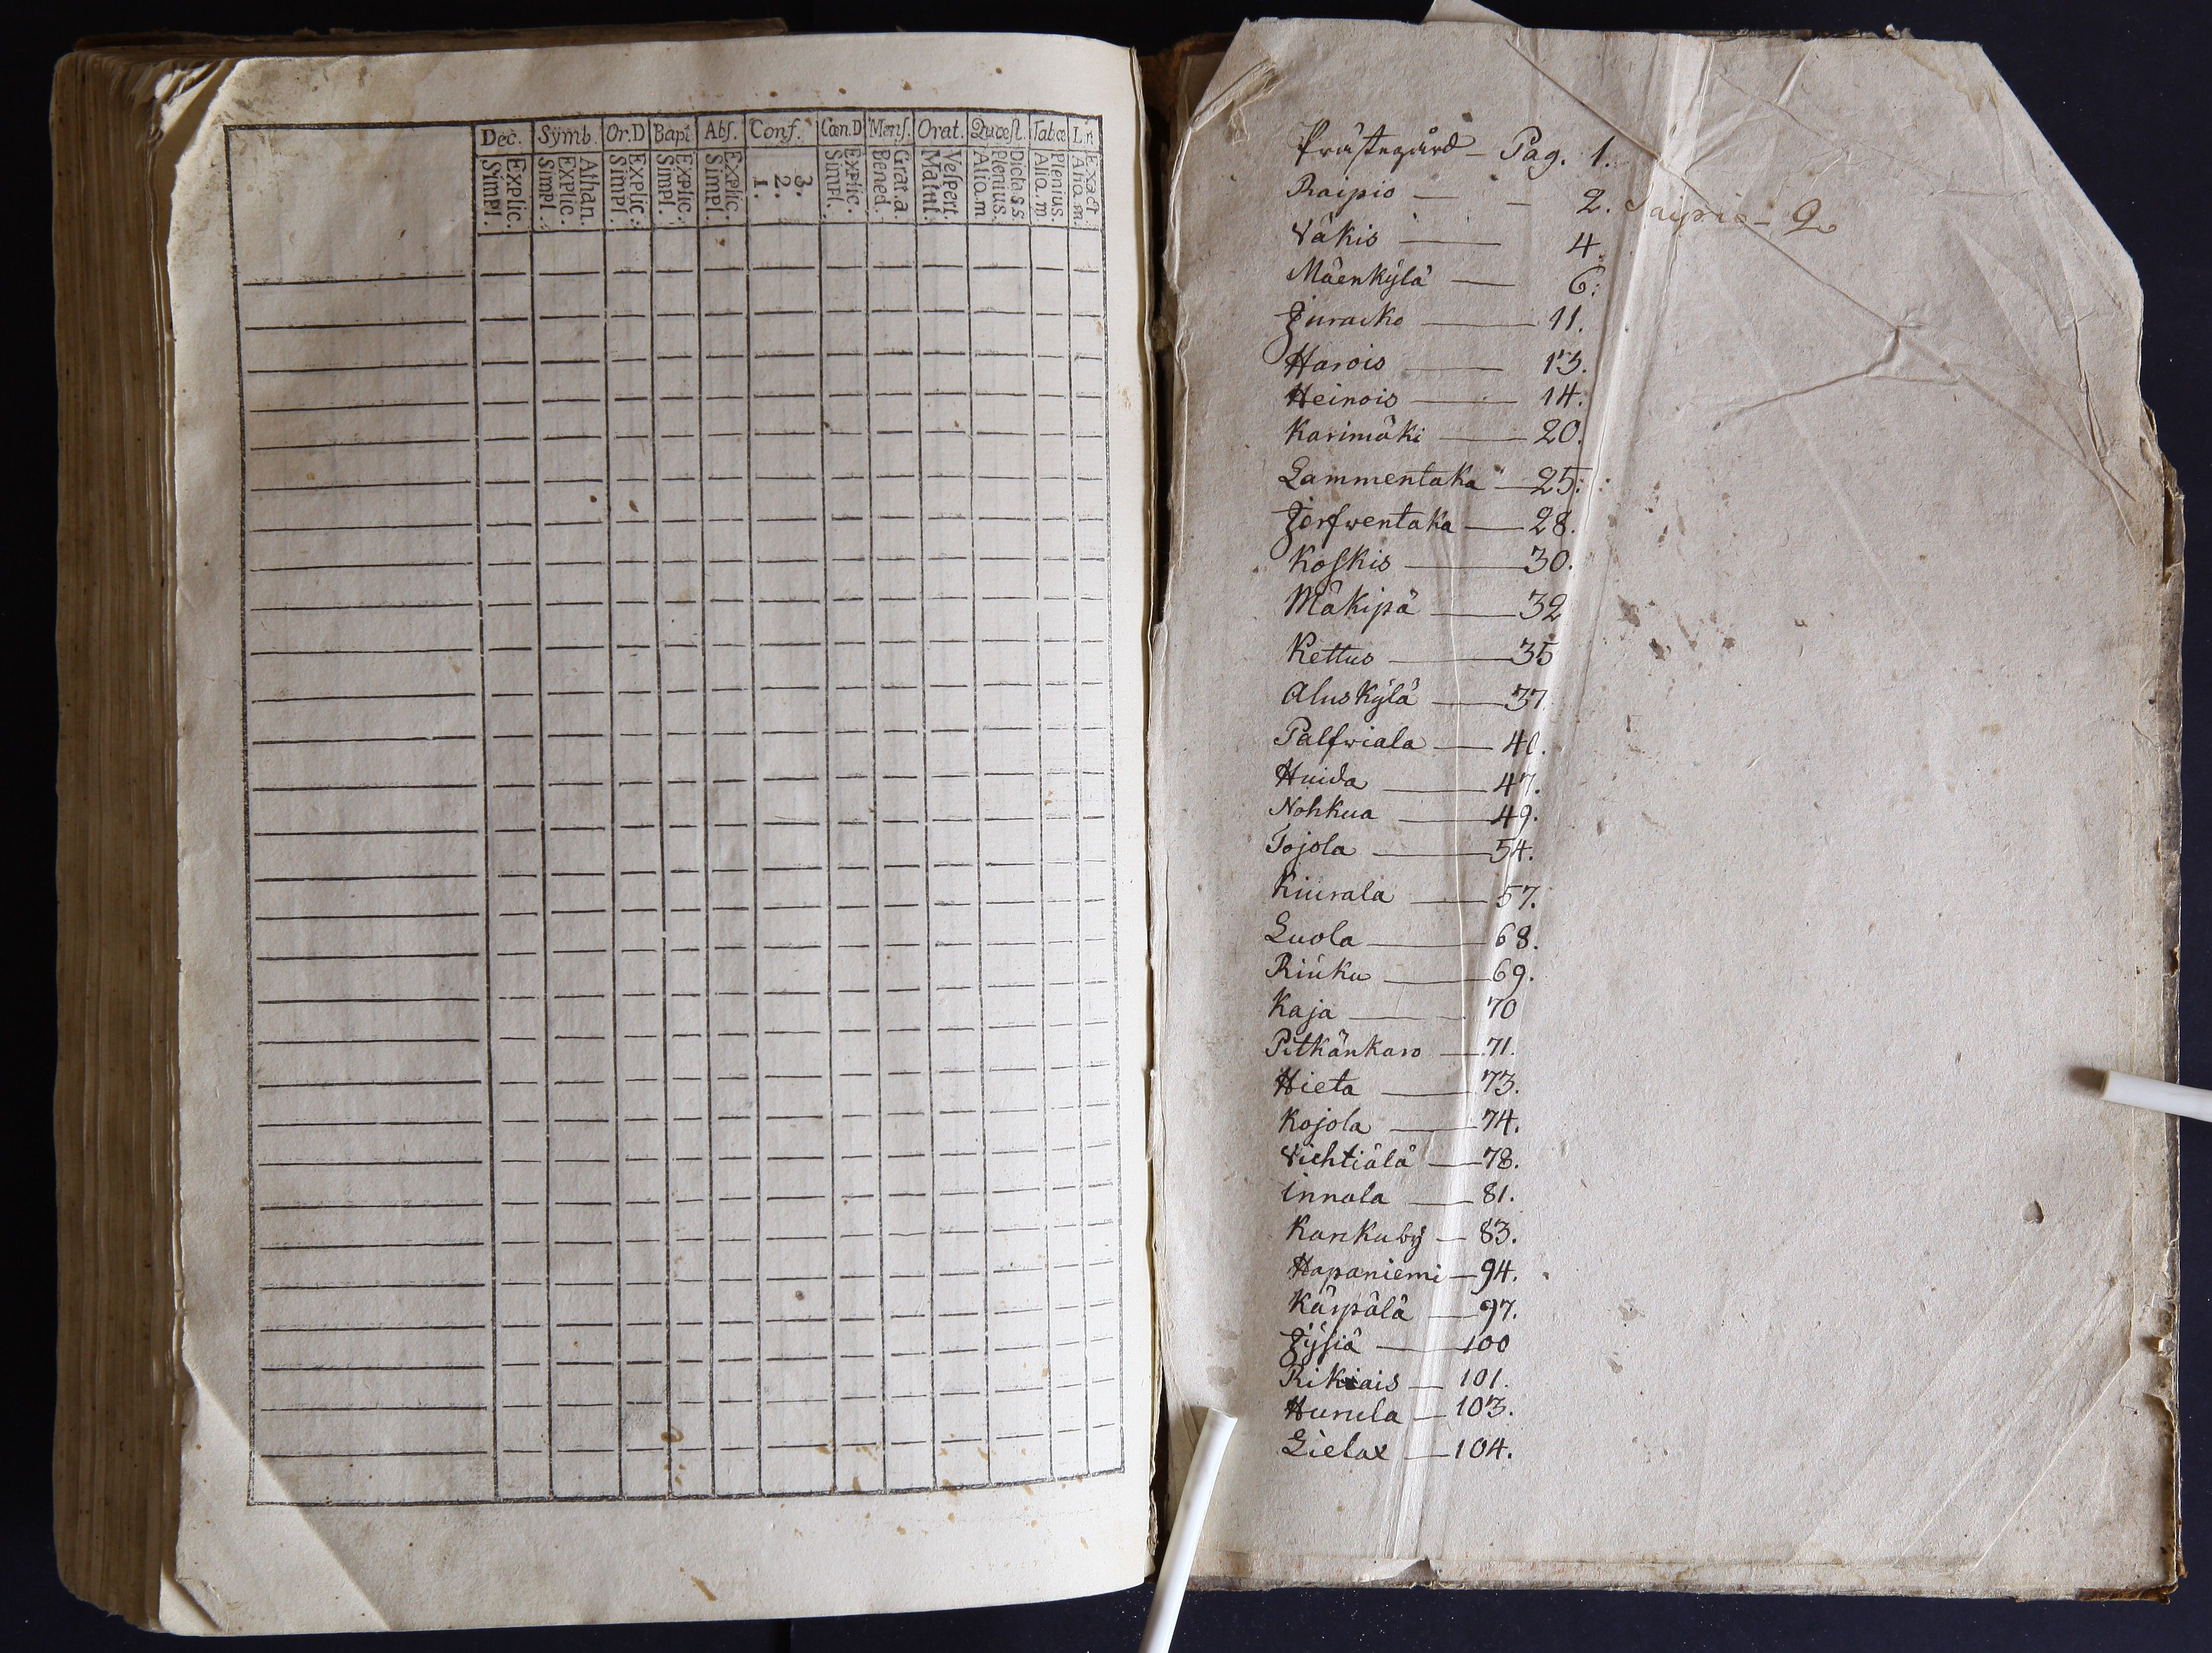 Dec. Symb. Or.D Bapt. Abs. Conf. Cœn.D Mens. Orat. Quæst. Tabœ L.n.
Explic. Simpl.
Athan. Explic. Simpl.
Explic. Simpl.
Explic. Simpl.
Explic. Simpl.
3. 2. 1.
Explic. Simpl.
Grat.a. Bened.
Vespert. Matut.
Dicta s s. Plenius. Alio. m
Plenius. Alio. m.
Exact. Alio. m.
Prästegård - Pag. 1.
Raipio — - 2. Raipio - 2
Väkis — 4.
Mäenkylä — 6.
Juvacko — 11.
Harois — 13.
Heinois — 14.
Karimäki — 20.
Lammentaka — 25.
Jerfwentaka — 28.
Koskis — 30.
Mäkipä — 32
Kettus — 35
Aluskylä — 37
Palfwiala — 40.
Huida — 47.
Nohkua — 49.
Tojola — 54.
Kiurala — 57.
Luola — 68.
Riuku — 69.
Kaja — 70
Pitkänkaro — 71.
Hieta — 73.
Kojola — 74.
Vichtiälä — 78.
Innala — 81.
Kankuby — 83.
Hapaniemi — 94.
Kärpälä — 97.
Jysiä — 100
Rikiais — 101.
Hurula — 103.
Lielax — 104.